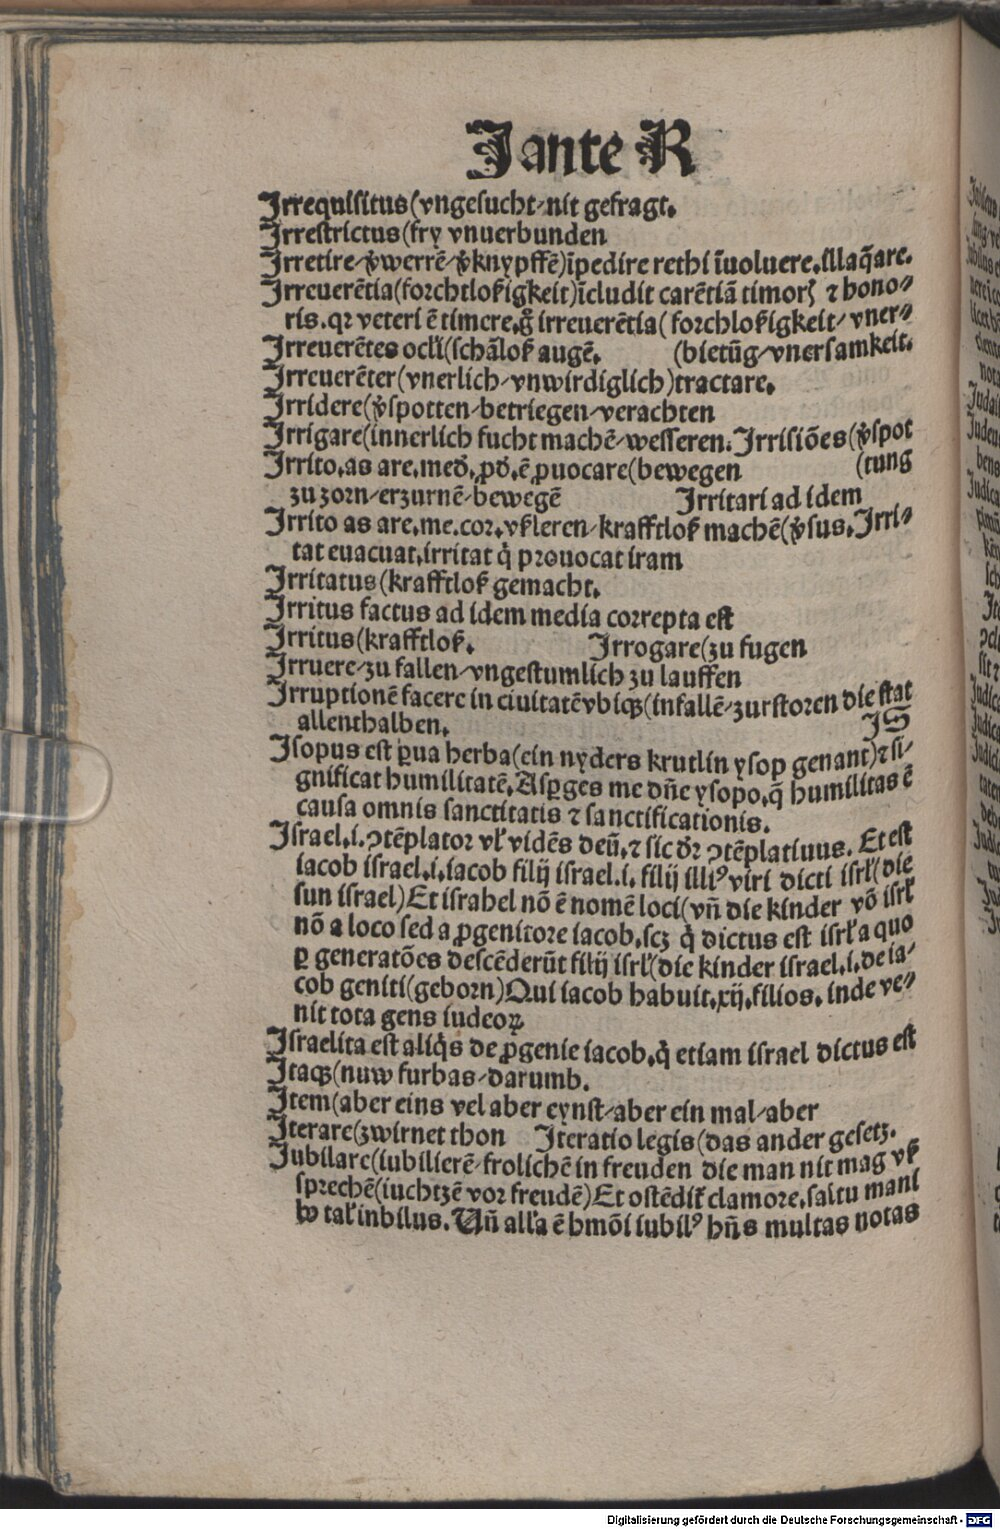 I ante R
Irrequisitus(vngesucht/nit gefragt.
Irrestrictus(fry vnuerbunden
Irretire/v̓werrē/v̓knypffē)īpedire rethi īuoluere.illaq̄are.
Irreuerētia(forchtloßigkeit)īcludit carētiā timorꝭ ⁊ bono⸗
ris.qꝛ veteri ē timere.g̊ irreuerētia(forchloßigkeit/vner⸗
Irreuerētes oclī(schāloß augē. (bietūg/vnersamkeit.
Irreuerēter(vnerlich/vnwirdiglich)tractare.
Irridere(v̓spotten/betriegen/verachten
Irrigare(innerlich fucht machē/wesseren.Irrisiões(v̓spot
Irrito.as are.med̓.ꝓd̓.ē ꝓuocare(bewegen (tung
zu zorn/erzurnē/bewegē Irritari ad idem
Irrito as are.me.cor.vßleren/krafftloß machē(v̓sus.Irri⸗
tat euacuat.irritat q̇ prouocat iram
Irritatus(krafftloß gemacht.
Irritus factus ad idem media correpta est
Irritus(krafftloß. Irrogare(zu fugen
Irruere/zu fallen/vngestumlich zu lauffen
Irruptionē facere in ciuitatē vbiqꝫ(infallē/zurstoren die stat
allenthalben. IS
Isopus est ꝑua herba(ein nyders krutlin ysop genant)⁊ si⸗
gnificat humilitatē.Asꝑges me dn̄e ysopo.q̄ humilitas ē
causa omnis sanctitatis ⁊ sanctificationis.
Israel.i.ꝯtēplator vł vidēs deū.⁊ sic dr̄ ꝯtēplatiuus. Et est
iacob israel.i.iacob filij israel.i.filij illiꝰ viri dicti isrł(die
sun israel)Et israhel nō ē nomē loci(vn̄ die kinder vō isrł
nō a loco sed a ꝓgenitore iacob.scꝫ q̇ dictus est isrł a quo
ꝑ generatōes descēderūt filij isrł(die kinder israel.i.de ia⸗
cob geniti(geborn)Qui iacob habuit.xij.filios. inde ve⸗
nit tota gens iudeoꝝ
Israelita est aliq̇s de ꝓgenie iacob.q̇ etiam israel dictus est
Itaqꝫ(nuw furbas/darumb.
Item(aber eins vel aber eynst/aber ein mal/aber
Iterare(zwirnet thon Iteratio legis(das ander gesetz.
Iubilare(iubilierē/frolichē in freuden die man nit mag vß
sprechē(iuchtzē vor freudē)Et ostēdiť clamore.saltu mani
tał inbilus.Vn̄ alľa ē hmōi iubilꝰ hn̄s multas notas
Digitalisierung gefördert durch die Deutsche Forschungsgemeinschaft - DFG